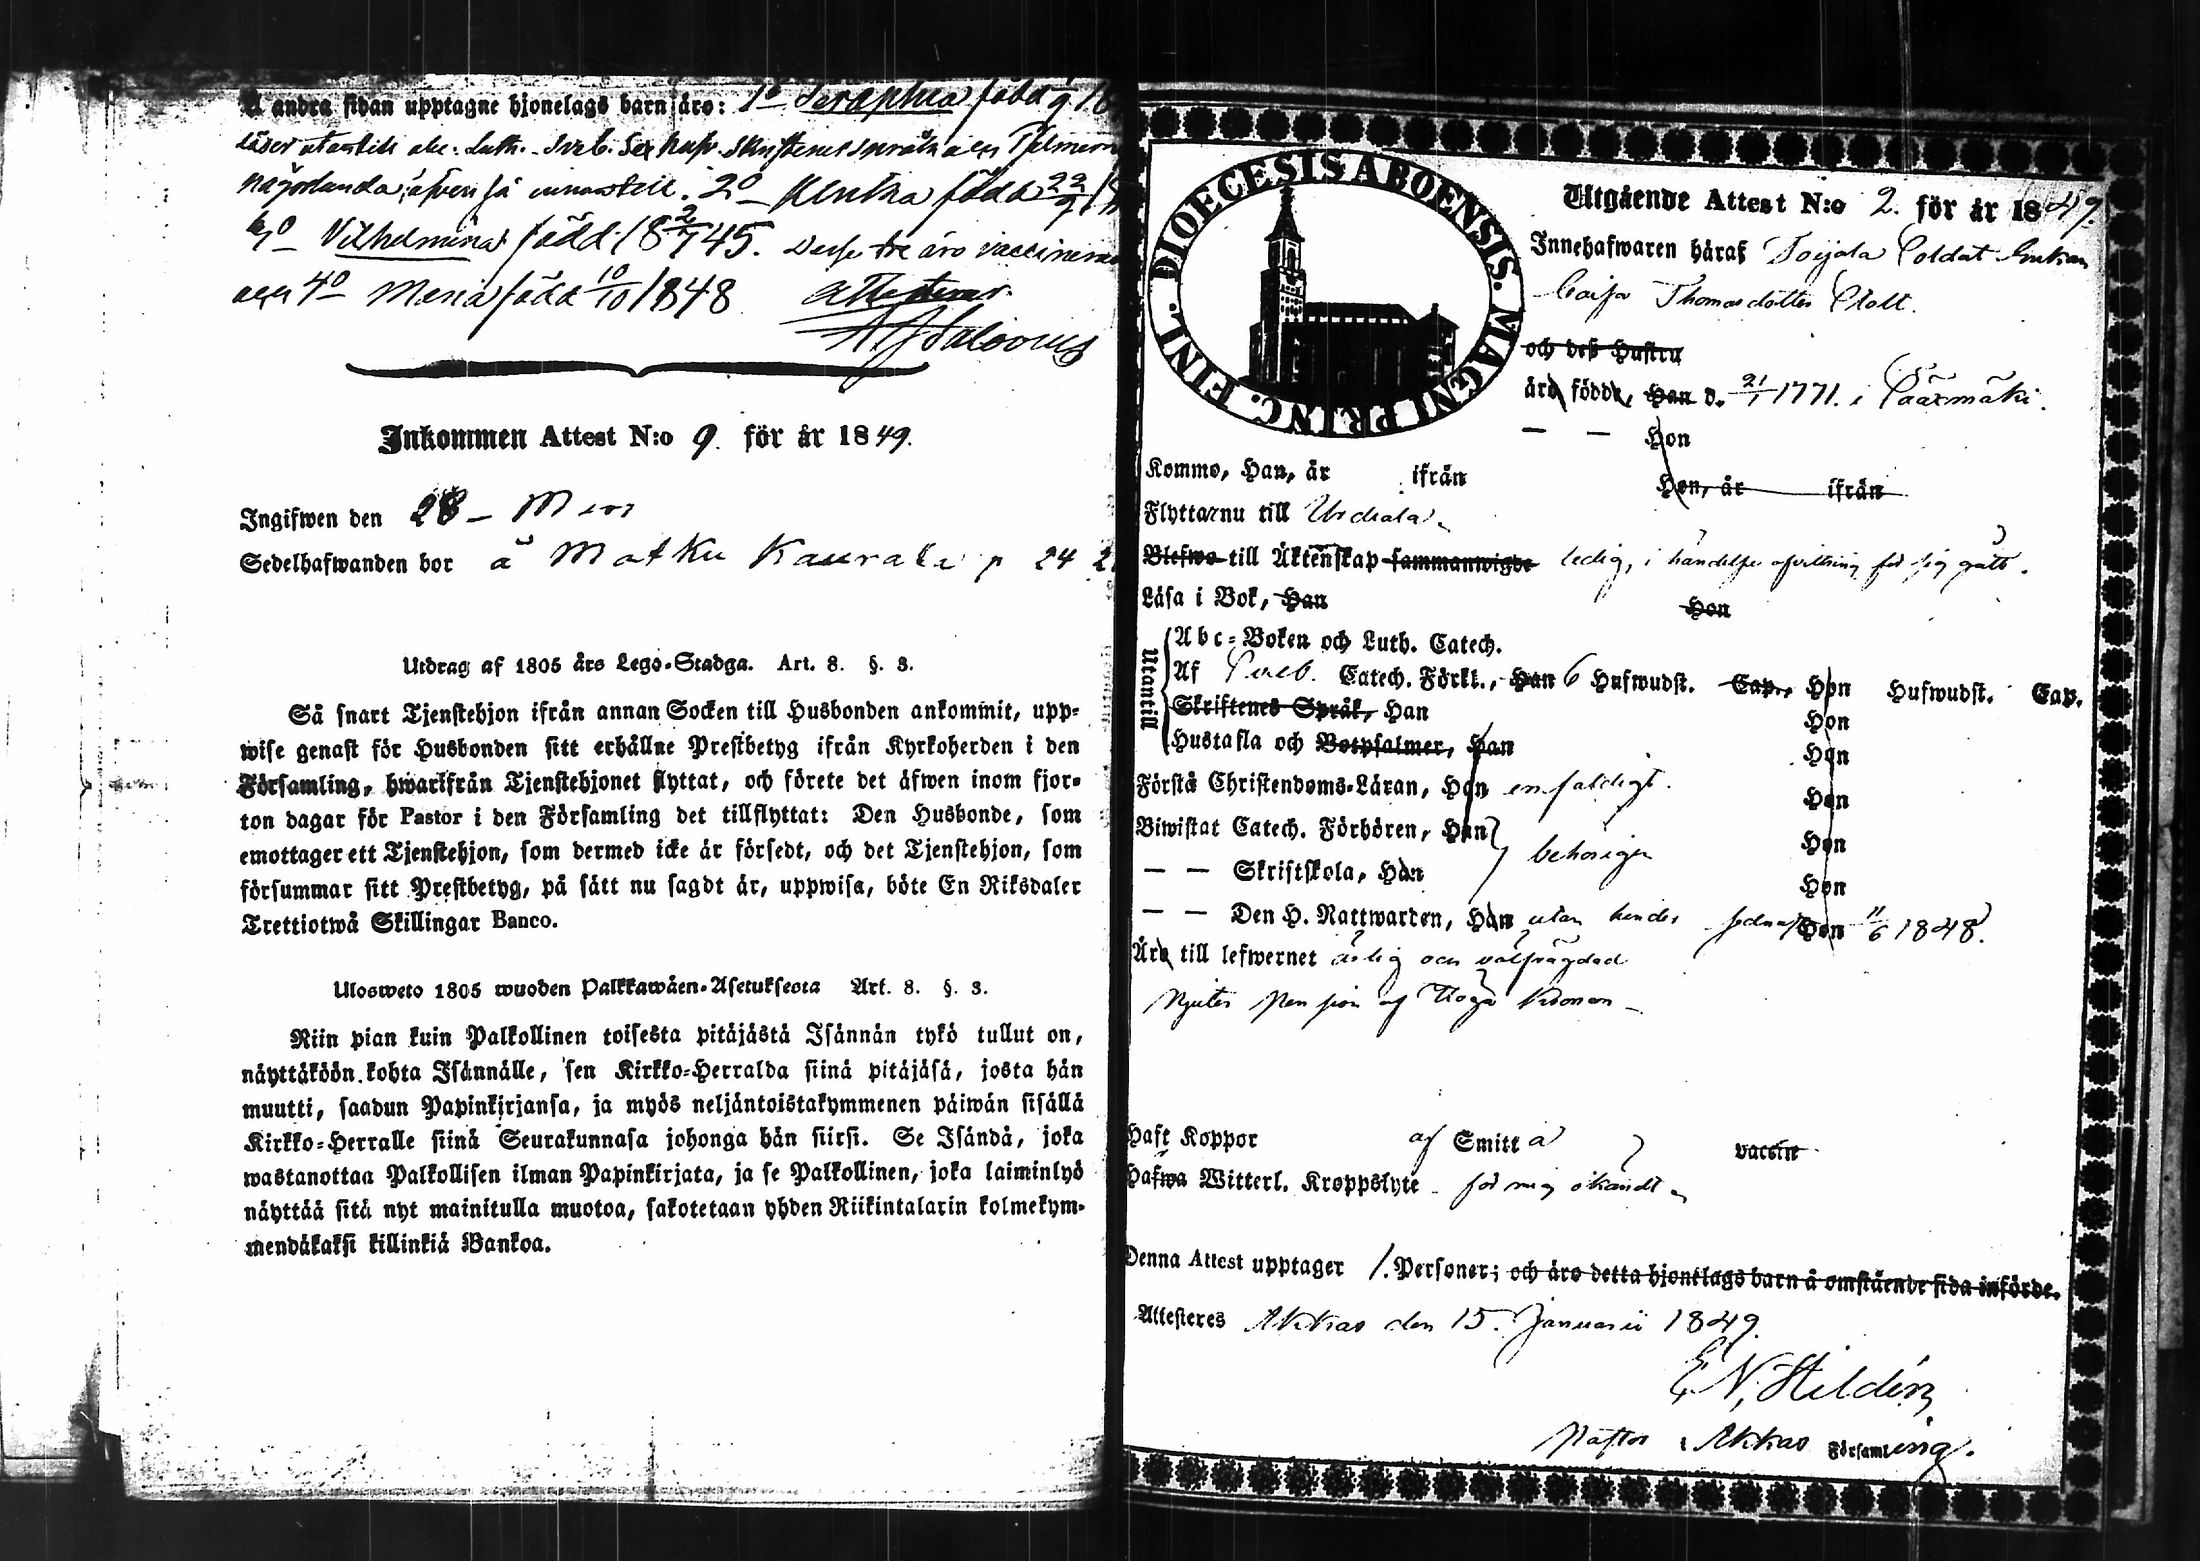 Å andra sidan upptagne hjonelags barn äro: 1o Seraphia född
läser utantill abc. Luth. Sveb. Sex kap. Skriftenes språk och
någorlunda, äfven så innantill. 2o född 22/9
3o Vilhelmina född 2/7 1845. Desse tre äro vaccinerade
och 4o Maria född 10/10 1848 attesterar
Inkommen Attest N:o 9. för år 1849.
Ingifwen den 28
Sedelhafwanden bor å Matku p 24
Utdrag af 1805 års Lego-Stadga. Art. 8. §. 3.
Så snart Tjenstehjon ifrån annan Socken till Husbonden ankommit, upp-
wise genast för Husbonden sitt erhållne Prestbetyg ifrån Kyrkoherden i den
Församling, hwarifrån Tjenstehjonet flyttat, och förete det äfwen inom fjor-
ton dagar för Pastor i den Församling det tillflyttat: Den Husbonde, som
emottager ett Tjenstehjon, som dermed icke är försedt, och det Tjenstehjon, som
försummar sitt Prestbetyg, på sätt nu sagdt är, uppwisa, böte En Riksdaler
Trettiotwå Skillingar Banco.
Ulosweto 1805 wuoden Palkkawäen-Asetuksesta Art. 8. §. 3.
Niin pian kuin Palkollinen toisesta pitäjästä Isännän tykö tullut on,
näyttäköön kohta Isännälle, sen Kirkko-Herralda siinä pitäjäsä, josta hän
muutti, saadun Papinkirjansa, ja myös neljäntoistakymmenen päiwän sisällä
Kirkko-Herralle siinä Seurakunnasa johonga hän siirsi. Se Isändä, joka
wastanottaa Palkollisen ilman Papinkirjata, ja se Palkollinen, joka laiminlyö
näyttää sitä nyt mainitulla muotoa, sakotetaan yhden Riikintalarin kolmekym-
mendäkaksi killinkiä Bankoa.
DIOECESIS ABOENSIS. MAGNI PRINC. FINL.
Utgående Attest N:o 2. för år 1849.
Innehafwaren häraf Toijala Soldat Enkan
Caisa Thomasdotter Stolt.
och deß Hustru
äro födde, Han d. 21/1 1771. i Säärmäki.
— — Hon
Kommo, Han, är ifrån Hon, är ifrån
Flyttar nu till Urdiala
Blefwo till Äktenskap sammanwigde ledig, i händelse afvittring för sig gått.
Läsa i Bok, Han Hon
Utantill
Abc-Boken och Luth. Catech.
Af Sveb. Catech. Förkl., Han 6 Hufwudst. Cap., Hon Hufwudst. Cap.
Skriftenes Språk, Han Hon
Hustafla och Botpsalmer, Han Hon
Förstå Christendoms-Läran, Han enfaldigt. Hon
Biwistat Catech. Förhören, Han behörigen Hon
— — Skriftskola, Han Hon
— — Den H. Nattwarden, Han utan hinder sednast Hon 11/6 1848.
Äro till lefwernet ärlig och välfrägdad
Njuter pension af Höga Kronan
Haft Koppor af Smitta vaccin
Hafwa Witterl. Kroppslyte för mig okändt
Denna Attest upptager 1. Personer; och äro detta hjonelags barn å omstående sida införde.
Attesteres Akkas den 15. Januarii 1849.
E N. Hildén
Pastor i Akkas Församling.